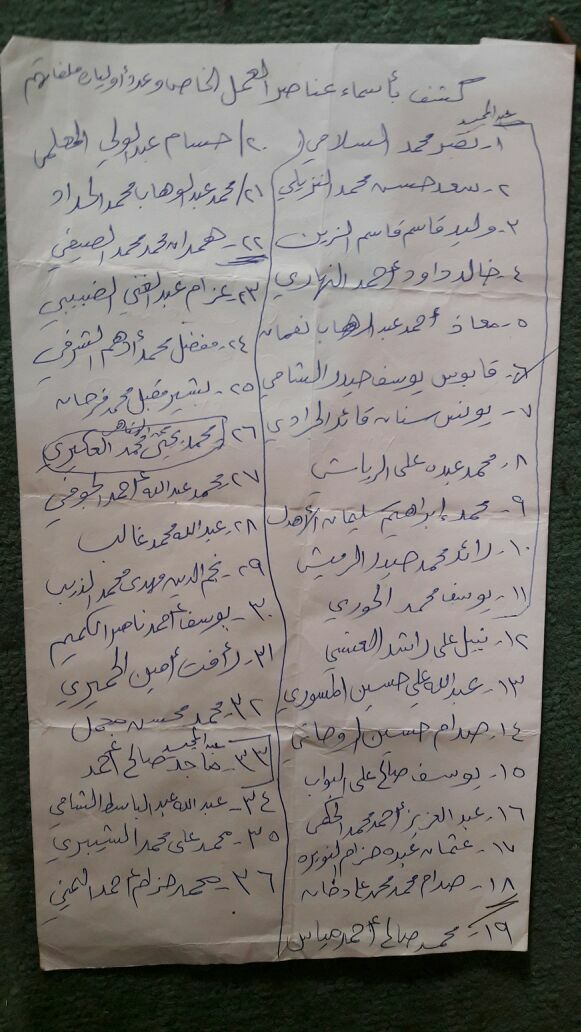 كشف بأسماء عناصر العمل الخاص وعدد أوليات ملفاتهم
عبدالحميد
١- نصر محمد السلامي
٢- سعد حسن محمد النزيلي
٣- وليد قاسم قاسم الزين
٤- خالد داود أحمد النهاري
٥- معاذ أحمد عبدالوهاب نعمان
٦- قابوس يوسف حيدر الشامي
٧- يونس سنان قائد الحرادي
٨- محمد عبده علي الرياشي
٩- محمد إبراهيم سليمان الأهدل
١٠- رائد محمد حيدر الرميش
١١- يوسف محمد الحوري
١٢- نبيل علي راشد العنسي
١٣- عبدالله علي حسين المسوري
١٤- صدام حسين الروحاني
١٥- يوسف صالح علي البواب
١٦- عبدالعزيز أحمد محمد الحكمي
١٧- عثمان عبده حزام النويره
١٨- صدام محمد محمد عادخان
١٩- محمد صالح أحمد عباس
٢٠/ حسام عبدالولي المعلمي
٢١/ محمد عبدالوهاب محمد الحداد
٢٢- همدان محمد محمد الصيفي
٢٣- عزام عبدالغني الضبيبي
٢٤- مفضل محمد أدهم الشرفي
٢٥- بشير مقبل محمد فرحان
٢٦- محمد يحيى محمد العكيري
٢٧- محمد عبدالله أحمد الجوفي
٢٨- عبدالله محمد غالب
٢٩- نجم الدين مهدي محمد الذيب
٣٠- يوسف أحمد ناصر الكميم
٣١- رأفت أمين الحميري
٣٢- محمد محسن مجمل
عبدالحميد
٣٣- ماجد صالح أحمد
٣٤- عبدالله عبدالباسط الشامي
٣٥- محمد علي محمد الشبيري
٣٦- محمد حزام أحمد اليمني